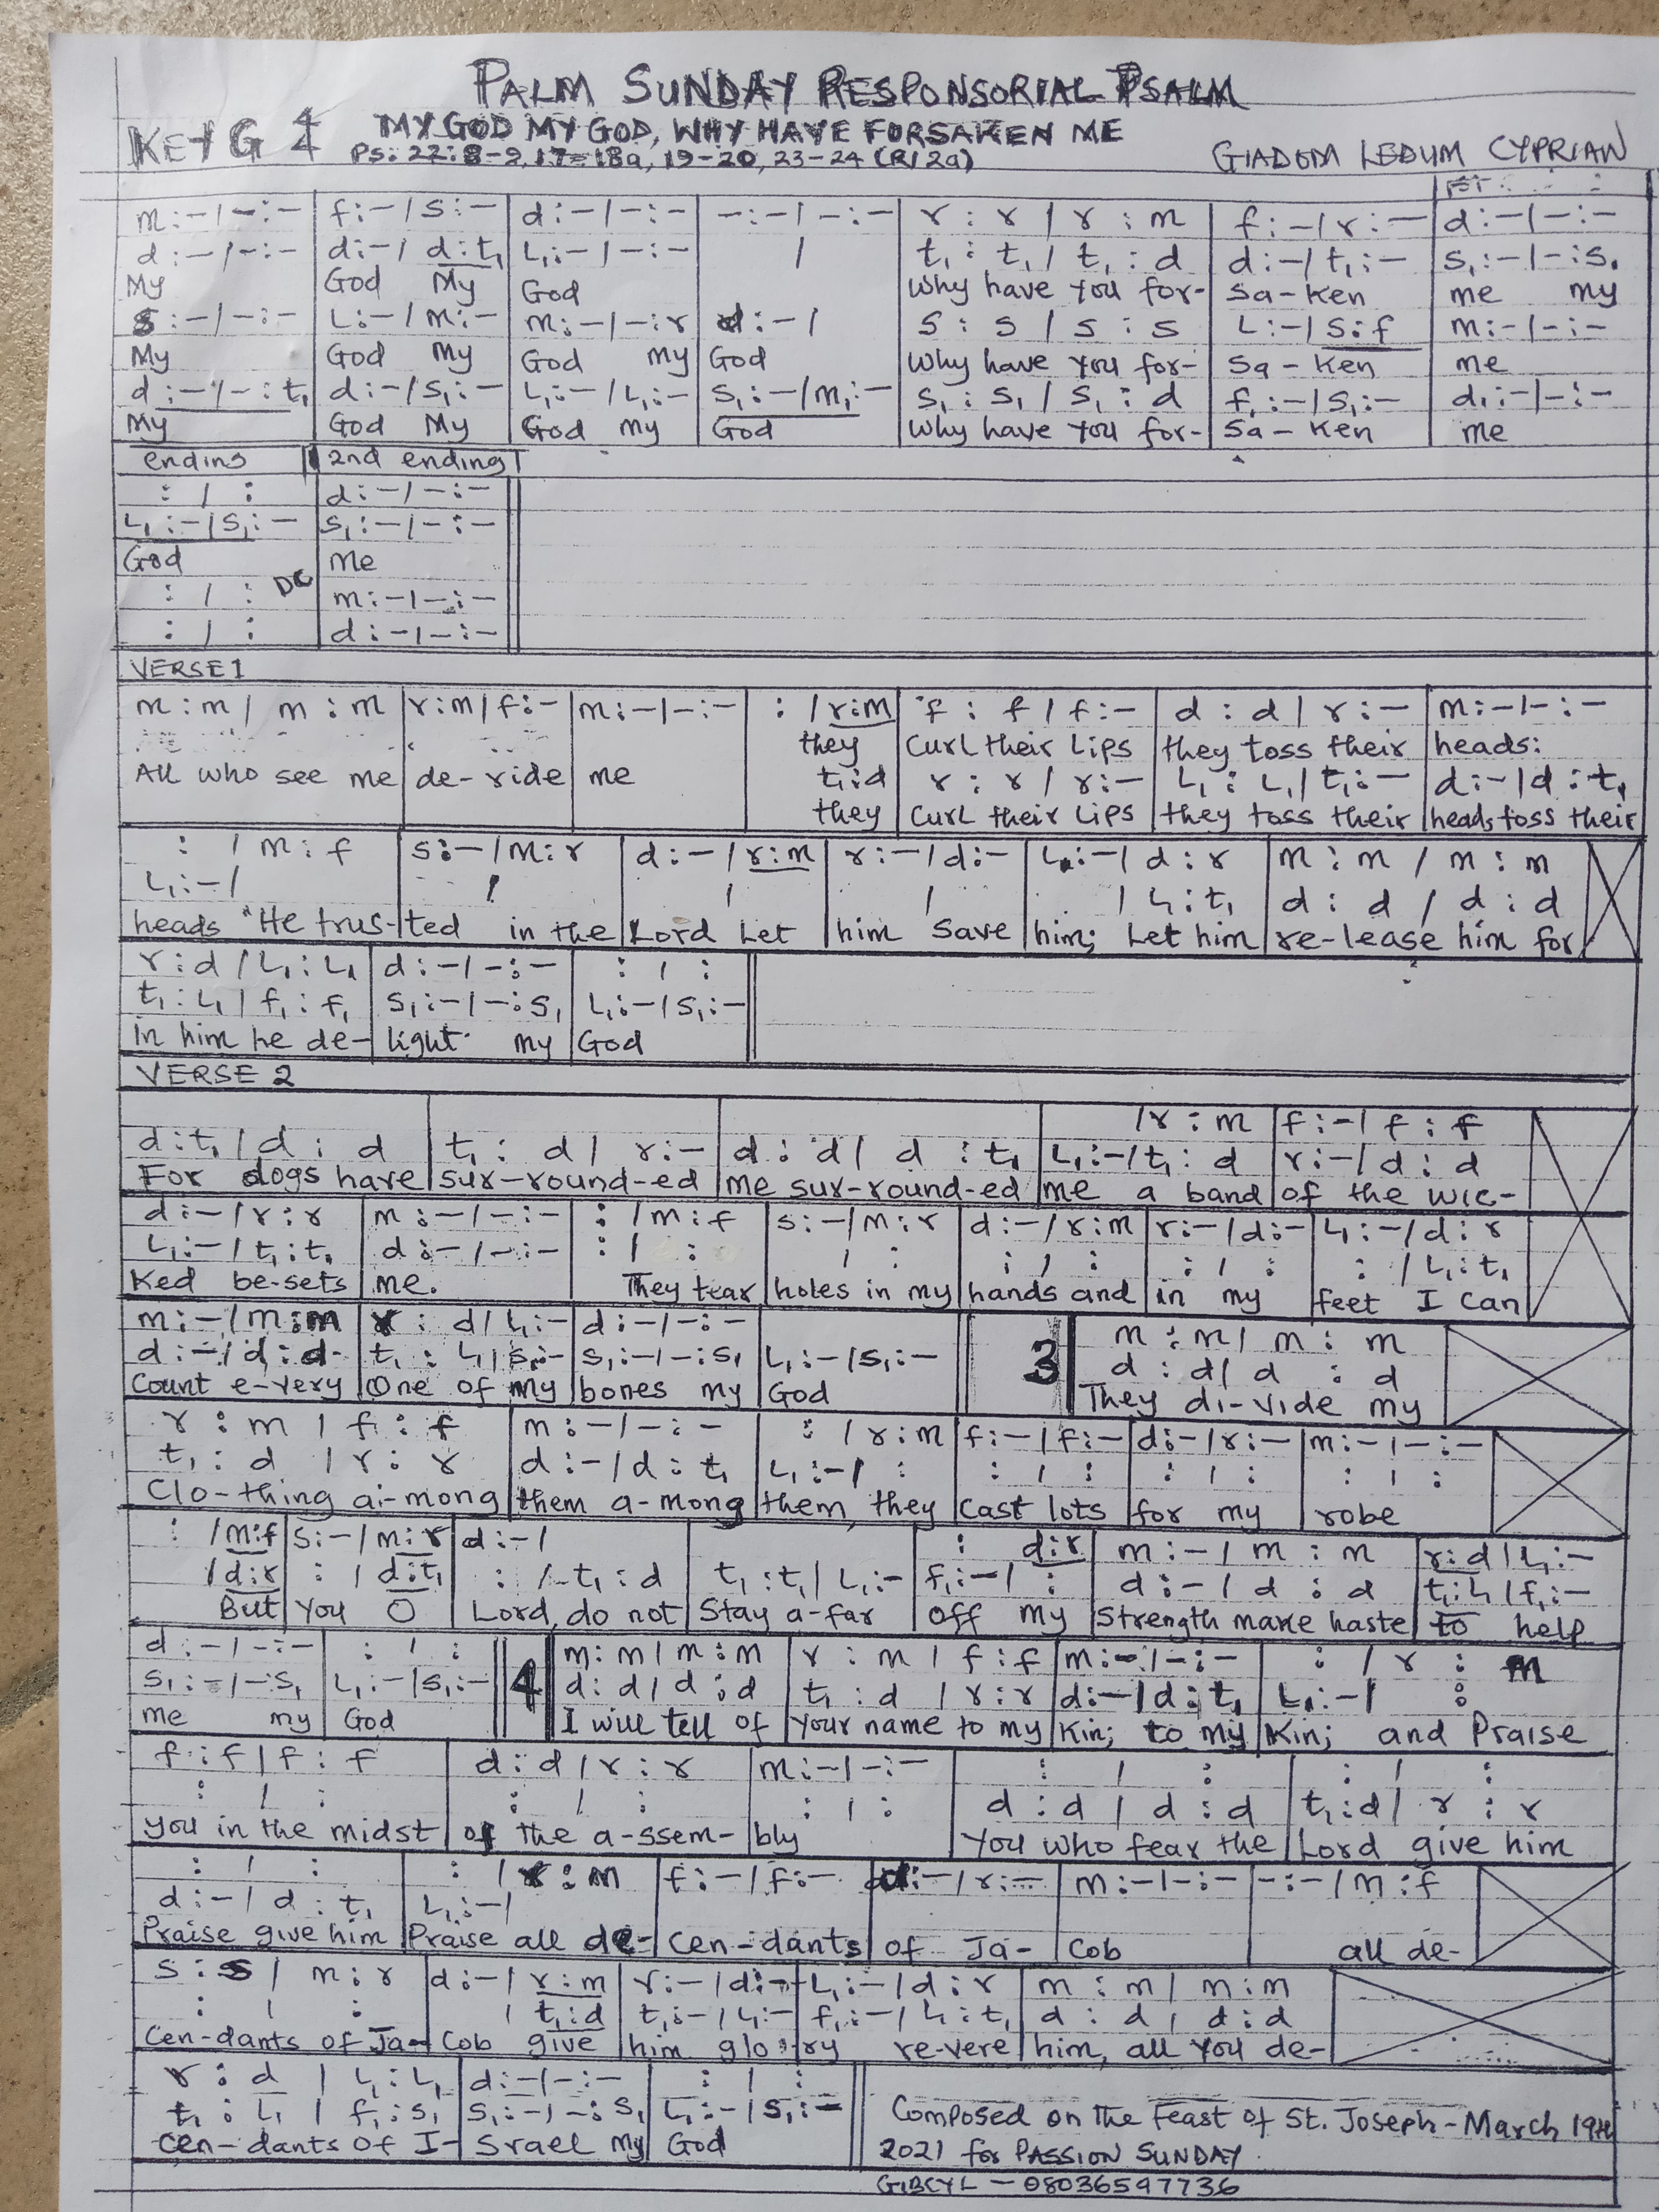 PALM SUNDAY RESPONSORIAL PSALM
KEY G 4 MY GOD MY GOD, WHY HAVE FORSAKEN ME
PS: 22:8-9, 17-18a, 19-20, 23-24 (R/2a) GIADOM LEDUM CYPRIAN
m:-/-:- f:-/s:- d:-/-:- -:-/-:- r:r/r:m f:-/r:- d:-/-:-
d:-/-:- d:-/d:t₁ L₁:-/-:- / t₁:t₁/t₁:d d:-/t₁:- s₁:-/-:s₁
My God My God Why have you for- Sa-Ken me my
s:-/-:- L:-/m:- m:-/-:r d:-/ s:s/s:s L:-/s:f m:-/-:-
My God My God my God Why have you for- Sa-Ken me
d:-/-:t₁ d:-/s₁:- L₁:-/L₁:- s₁:-/m₁:- s₁:s₁/s₁:d f₁:-/s₁:- d₁:-/-:-
My God My God my God Why have you for- Sa-Ken me
ending 2nd ending
: / : d:-/-:-
L₁:-/s₁:- s₁:-/-:-
God me
: / : DC m:-/-:-
: / : d:-/-:-
VERSE 1
m:m/m:m r:m/f:- m:-/-:- : /r:m f:f/f:- d:d/r:- m:-/-:-
they Curl their Lips they toss their heads:
All who see me de-ride me t₁:d r:r/r:- L₁:L₁/t₁:- d:-/d:t₁
they Curl their Lips they toss their heads toss their
: /m:f s:-/m:r d:-/r:m r:-/d:- L₁:-/d:r m:m/m:m
L₁:-/ / / / /L₁:t₁ d:d/d:d
heads "He trus-ted in the Lord Let him Save him; Let him re-lease him for
r:d/L₁:L₁ d:-/-:- : / :
t₁:L₁/f₁:f₁ s₁:-/-:s₁ L₁:-/s₁:-
in him he de-light my God
VERSE 2
/r:m f:-/f:f
d:t₁/d:d t₁:d/r:- d:d/d:t₁ L₁:-/t₁:d r:-/d:d
For dogs have sur-round-ed me sur-round-ed me a band of the wic-
d:-/r:r m:-/-:- : /m:f s:-/m:r d:-/r:m r:-/d:- L₁:-/d:r
L₁:-/t₁:t₁ d:-/-:- : / : / : : / : : / : : /L₁:t₁
Ked be-sets me. They tear holes in my hands and in my feet I can
m:-/m:m r:d/L₁:- d:-/-:- 3 m:m/m:m
d:-/d:d t₁:L₁/s₁:- s₁:-/-:s₁ L₁:-/s₁:- d:d/d:d
Count e-very One of my bones my God They di-vide my
r:m/f:f m:-/-:- : /r:m f:-/f:- d:-/r:- m:-/-:-
t₁:d/r:r d:-/d:t₁ L₁:-/ : : / : : / : : / :
Clo-thing a-mong them a-mong them, they cast lots for my robe
: /m:f s:-/m:r d:-/ : d:r m:-/m:m r:d/L₁:-
/d:r : /d:t₁ : /-t₁:d t₁:t₁/L₁:- f₁:-/ : d:-/d:d t₁:L₁/f₁:-
But You O Lord, do not Stay a-far off my Strength make haste to help
d:-/-:- : / : 4 m:m/m:m r:m/f:f m:-/-:- : /r:m
s₁:-/-:s₁ L₁:-/s₁:- d:d/d:d t₁:d/r:r d:-/d:t₁ L₁:-/ :
me my God I will tell of Your name to my Kin; to my Kin; and Praise
f:f/f:f d:d/r:r m:-/-:- : / : : / :
: / : : / : : / : d:d/d:d t₁:d/r:r
you in the midst of the a-ssem-bly You who fear the Lord give him
: / : : /r:m f:-/f:- d:-/r:- m:-/-:- -:-/m:f
d:-/d:t₁ L₁:-/
Praise give him Praise all de-cen-dants of Ja-cob all de-
s:s/m:r d:-/r:m r:-/d:- L₁:-/d:r m:m/m:m
: / : /t₁:d t₁:-/L₁:- f₁:-/L₁:t₁ d:d/d:d
Cen-dants of Ja-cob give him glo-ry re-vere him, all You de-
r:d/L₁:L₁ d:-/-:- : / :
t₁:L₁/f₁:s₁ s₁:-/-:s₁ L₁:-/s₁:-
cen-dants of I-srael my God
Composed on the Feast of St. Joseph-March 19th
2021 for PASSION SUNDAY
GIBCYL - 08036597736